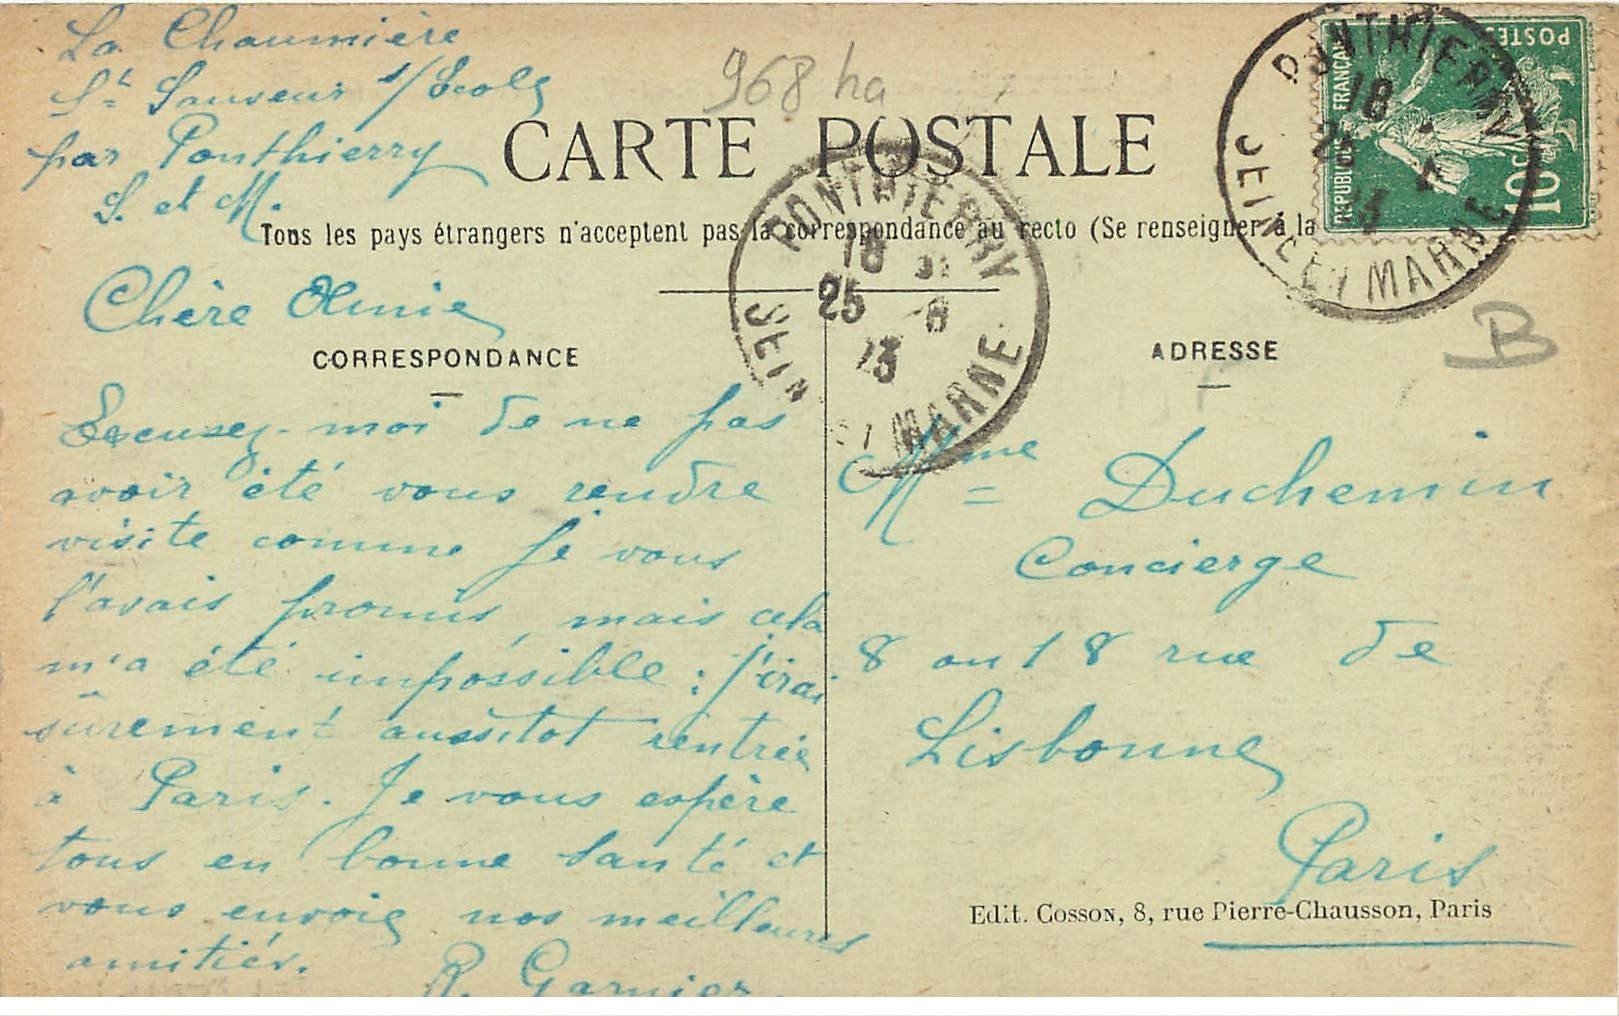 La Chaumière
St Sauveur s/Ecole
par Ponthierry
S. et M.
968 ha
CARTE POSTALE
Tous les pays étrangers n'acceptent pas la correspondance au recto (Se renseigner à la
PONTHIERRY
18
25 -8
13
SEINE ET MARNE
PONTHIERRY
18
25
13
SEINE ET MARNE
REPUBLIQUE FRANÇAISE
POSTES
10c
B
CORRESPONDANCE
Chère Amie
Excusez-moi de ne pas
avoir été vous rendre
visite comme je vous
l'avais promis, mais cela
m'a été impossible : j'irai
sûrement aussitôt rentrée
à Paris. Je vous espère
tous en bonne santé et
vous envoie nos meilleures
amitiés.
R. Garnier
ADRESSE
Mme Duchemin
Concierge
8 ou 18 rue de
Lisbonne
Paris
Edit. COSSON, 8, rue Pierre-Chausson, Paris